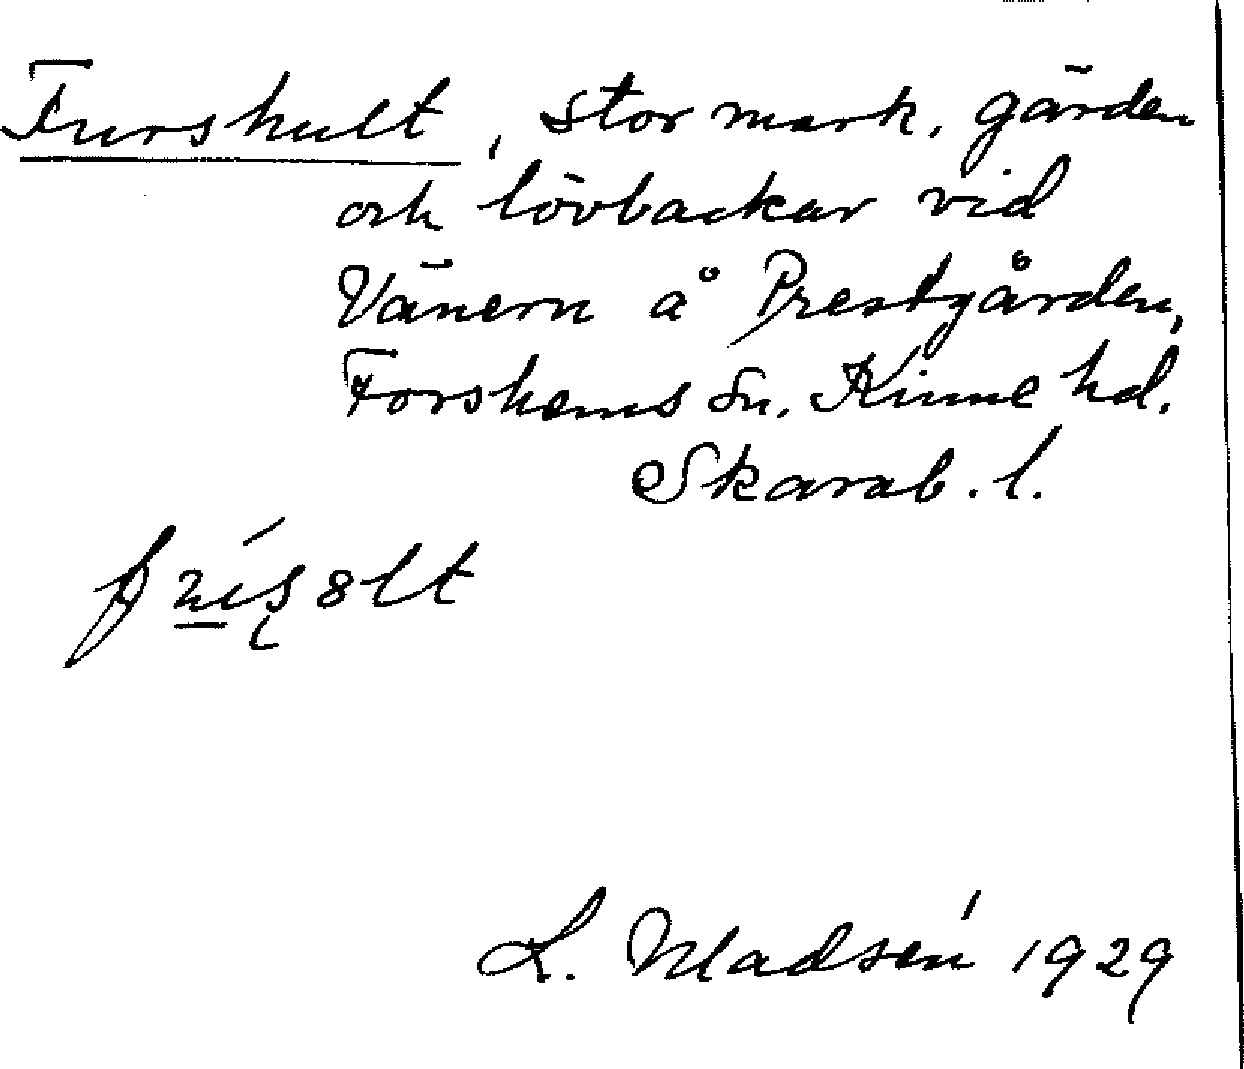 Furshult, stor mark, gärden
och lövbackar vid
Vänern å Prestgården,
Forshems sn. Kinne hd.
Skarab. l.
L. Madsén 1929